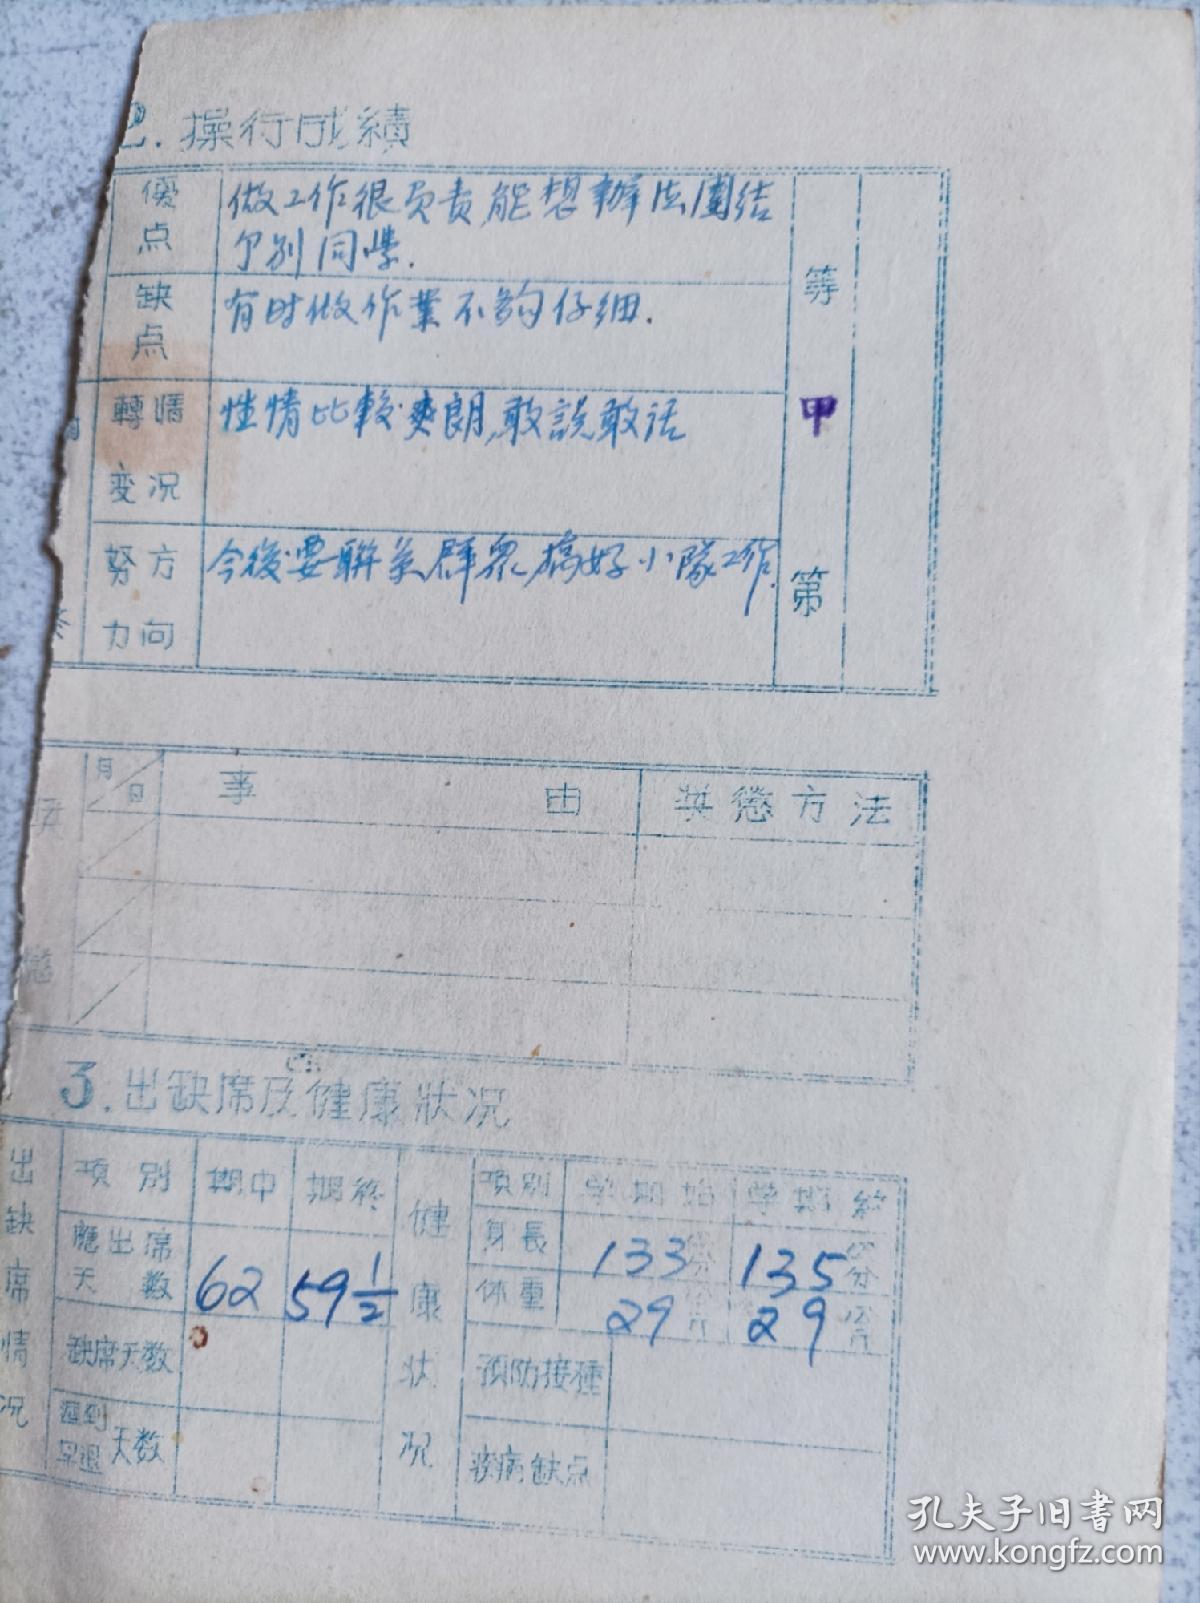 2.操行成績
優点 做工作很负责能想辦法團结
个别同學.
缺点 有时做作業不夠仔细.
轉变情况 性情比較爽朗,敢説敢话
努力方向 今後要聯系群眾,搞好小隊工作.
等 甲 第
月 日 事由 奖懲方法
懲
3.出缺席及健康狀况
出缺席情况 項別 期中 期終
應出席天数 62 59½
缺席天数
遲到早退天数
健康状况 項別 学期始 学期終
身長 133公分 135公分
体重 29公斤 29公斤
預防接種
疾病缺点
孔夫子旧书网
www.kongfz.com